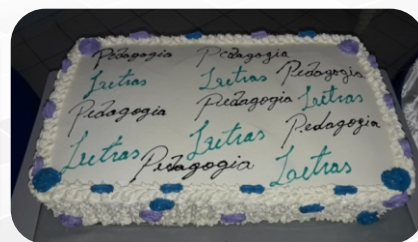 Pedagogia Pedagogia
Letras Letras Pedagogia
Pedagogia Pedagogia Letras
Letras Letras Pedagogia
Pedagogia Letras